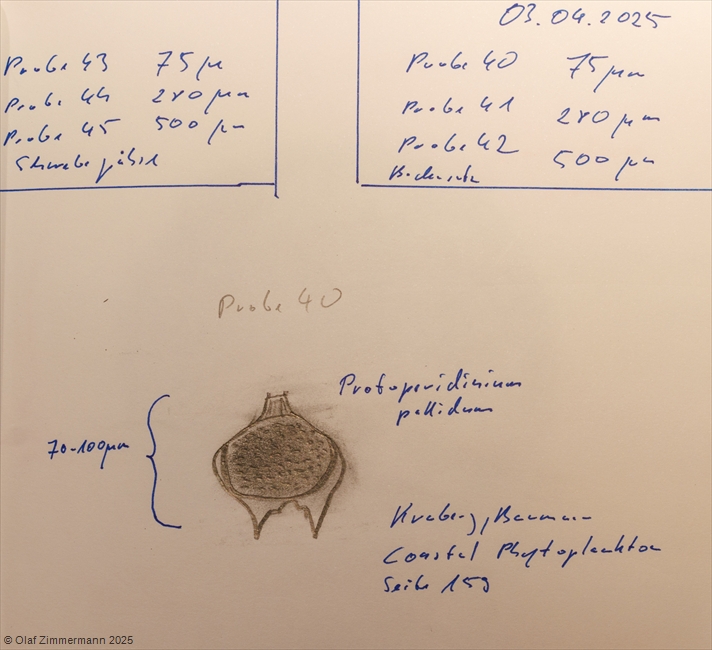 Probe 43 75 µm
Probe 44 280 µm
Probe 45 500 µm
03.04.2025
Probe 40 75 µm
Probe 41 280 µm
Probe 42 500 µm
Bodensatz
Probe 40
Protoperidinium
pallidum
70-100µm
Kraberg, Baumann
Coastal Phytoplankton
Seite 159
© Olaf Zimmermann 2025